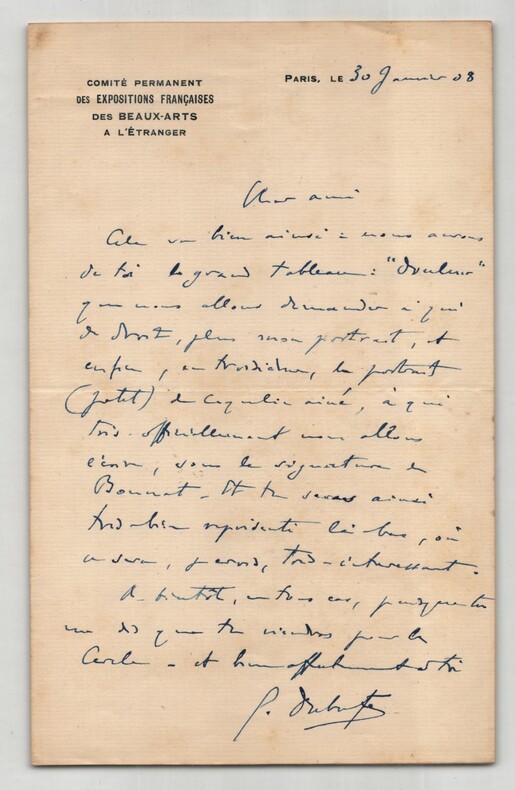 COMITÉ PERMANENT
DES EXPOSITIONS FRANÇAISES
DES BEAUX-ARTS
A L'ÉTRANGER
PARIS, LE 30 Janvier 08
Cher ami
Cela va bien ainsi : nous aurons
de toi le grand tableau : "Douleur"
que nous allons demander à qui
de droit, plus mon portrait, et
enfin, en troisième, le portrait
(petit) de Coquelin aîné, à qui
très officiellement nous allons
écrire, sous la signature de
Bonnat. Et tu seras ainsi
très bien représenté là-bas, où
ce sera, je crois, très-intéressant.
A bientôt, en tous cas, puisque tu
me dis que tu viendras pour le
Cercle - et bien affectueusement à toi
G. Dubufe